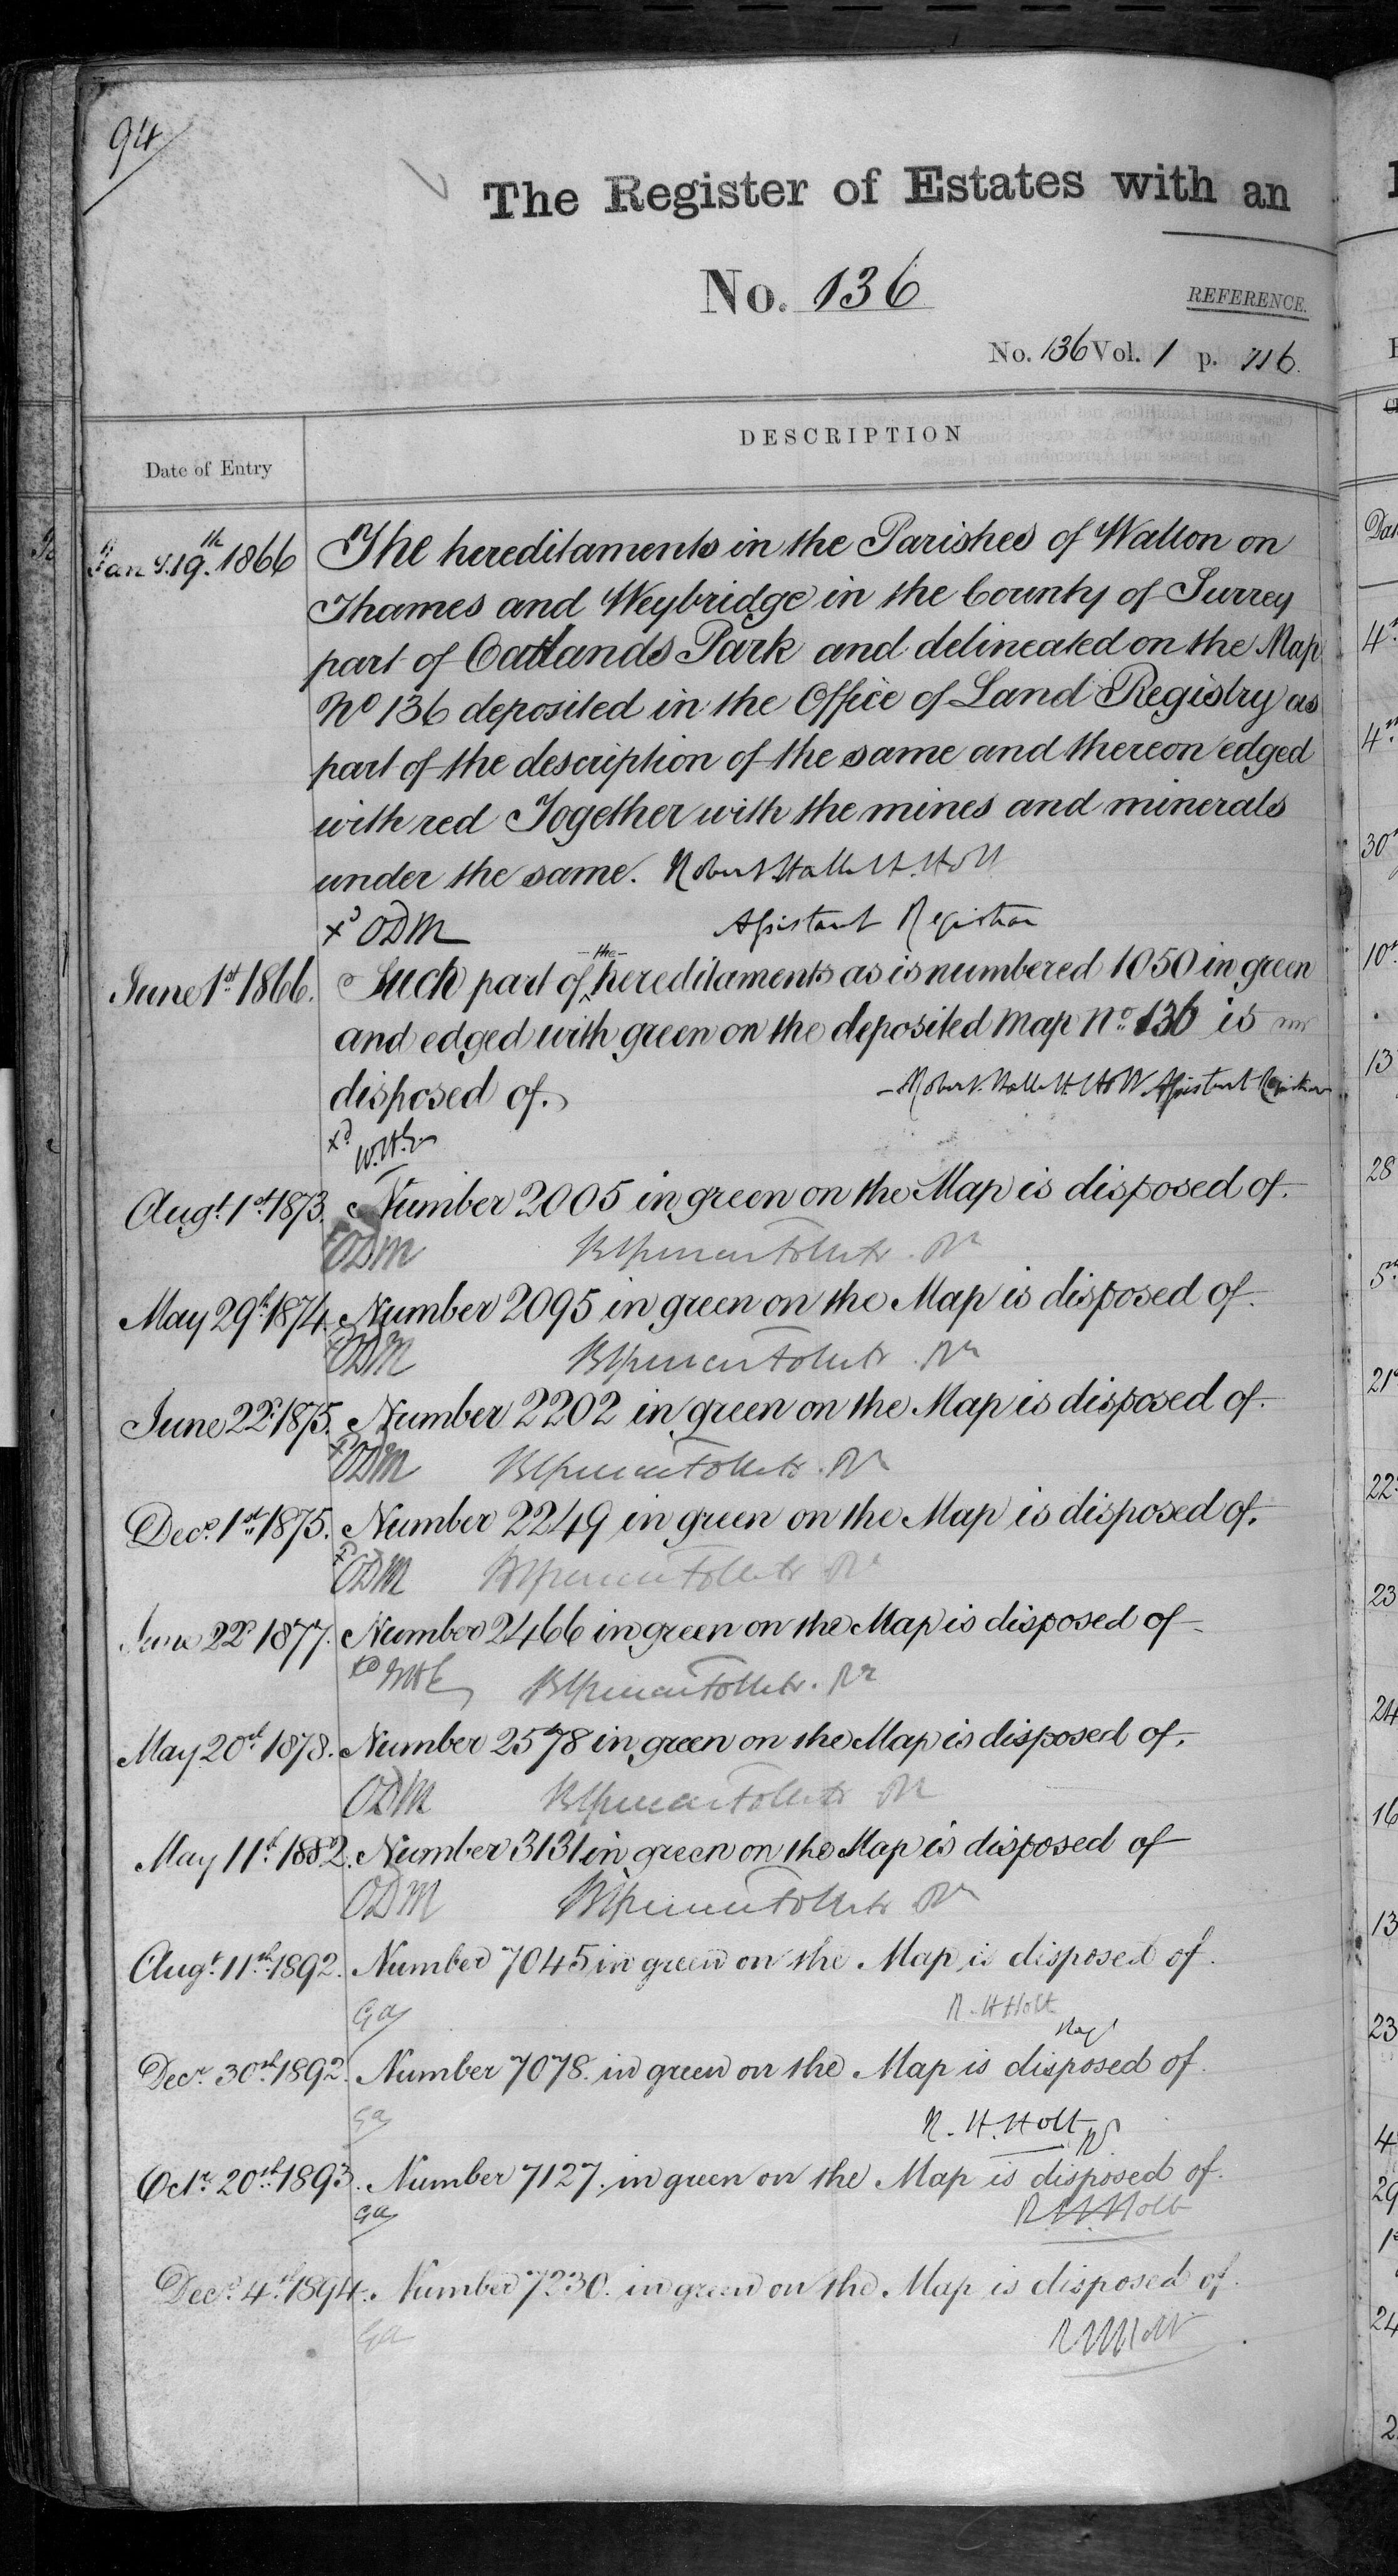 94
The Register of Estates with an
No. 136
REFERENCE.
No. 136 Vol. 1 p. 716.
DESCRIPTION
Date of Entry
Jany. 19th. 1866 The hereditaments in the Parishes of Walton on
Thames and Weybridge in the County of Surrey
part of Oatlands Park and delineated on the Map
No 136 deposited in the Office of Land Registry as
part of the description of the same and thereon edged
with red Together with the mines and minerals
under the same. Robert Hallett Holt
xd ODM Assistant Registrar
June 1st 1866. Such part of the hereditaments as is numbered 1050 in green
and edged with green on the deposited map No. 136 is
disposed of. Robert Hallett Holt Assistant Registrar
xd W.H.G.
Augt. 1st. 1873. Number 2005 in green on the Map is disposed of.
xd ODM Brent Spencer Follett. Rr
May 29th. 1874. Number 2095 in green on the Map is disposed of.
xd ODM Brent Spencer Follett. Rr
June 22d. 1875. Number 2202 in green on the Map is disposed of.
xd ODM Brent Spencer Follett. Rr
Decr. 1st. 1875. Number 2249 in green on the Map is disposed of.
xd ODM Brent Spencer Follett Rr
June 22d 1877. Number 2466 in green on the Map is disposed of
xd Brent Spencer Follett. Rr
May 20th 1878. Number 2578 in green on the Map is disposed of.
ODM Brent Spencer Follett Rr
May 11th. 1882. Number 3131 in green on the Map is disposed of
ODM Brent Spencer Follett Rr
Augt. 11th. 1892. Number 7045 in green on the Map is disposed of.
Ga R. H Holt
Regr
Decr. 30th. 1892. Number 7078. in green on the Map is disposed of.
Ga R. H. Holt Rr
Octr. 20th. 1893. Number 7127. in green on the Map is disposed of.
Ga R. H. Holt
Decr. 4th. 1894. Number 7230. in green on the Map is disposed of.
Ga R H Holt